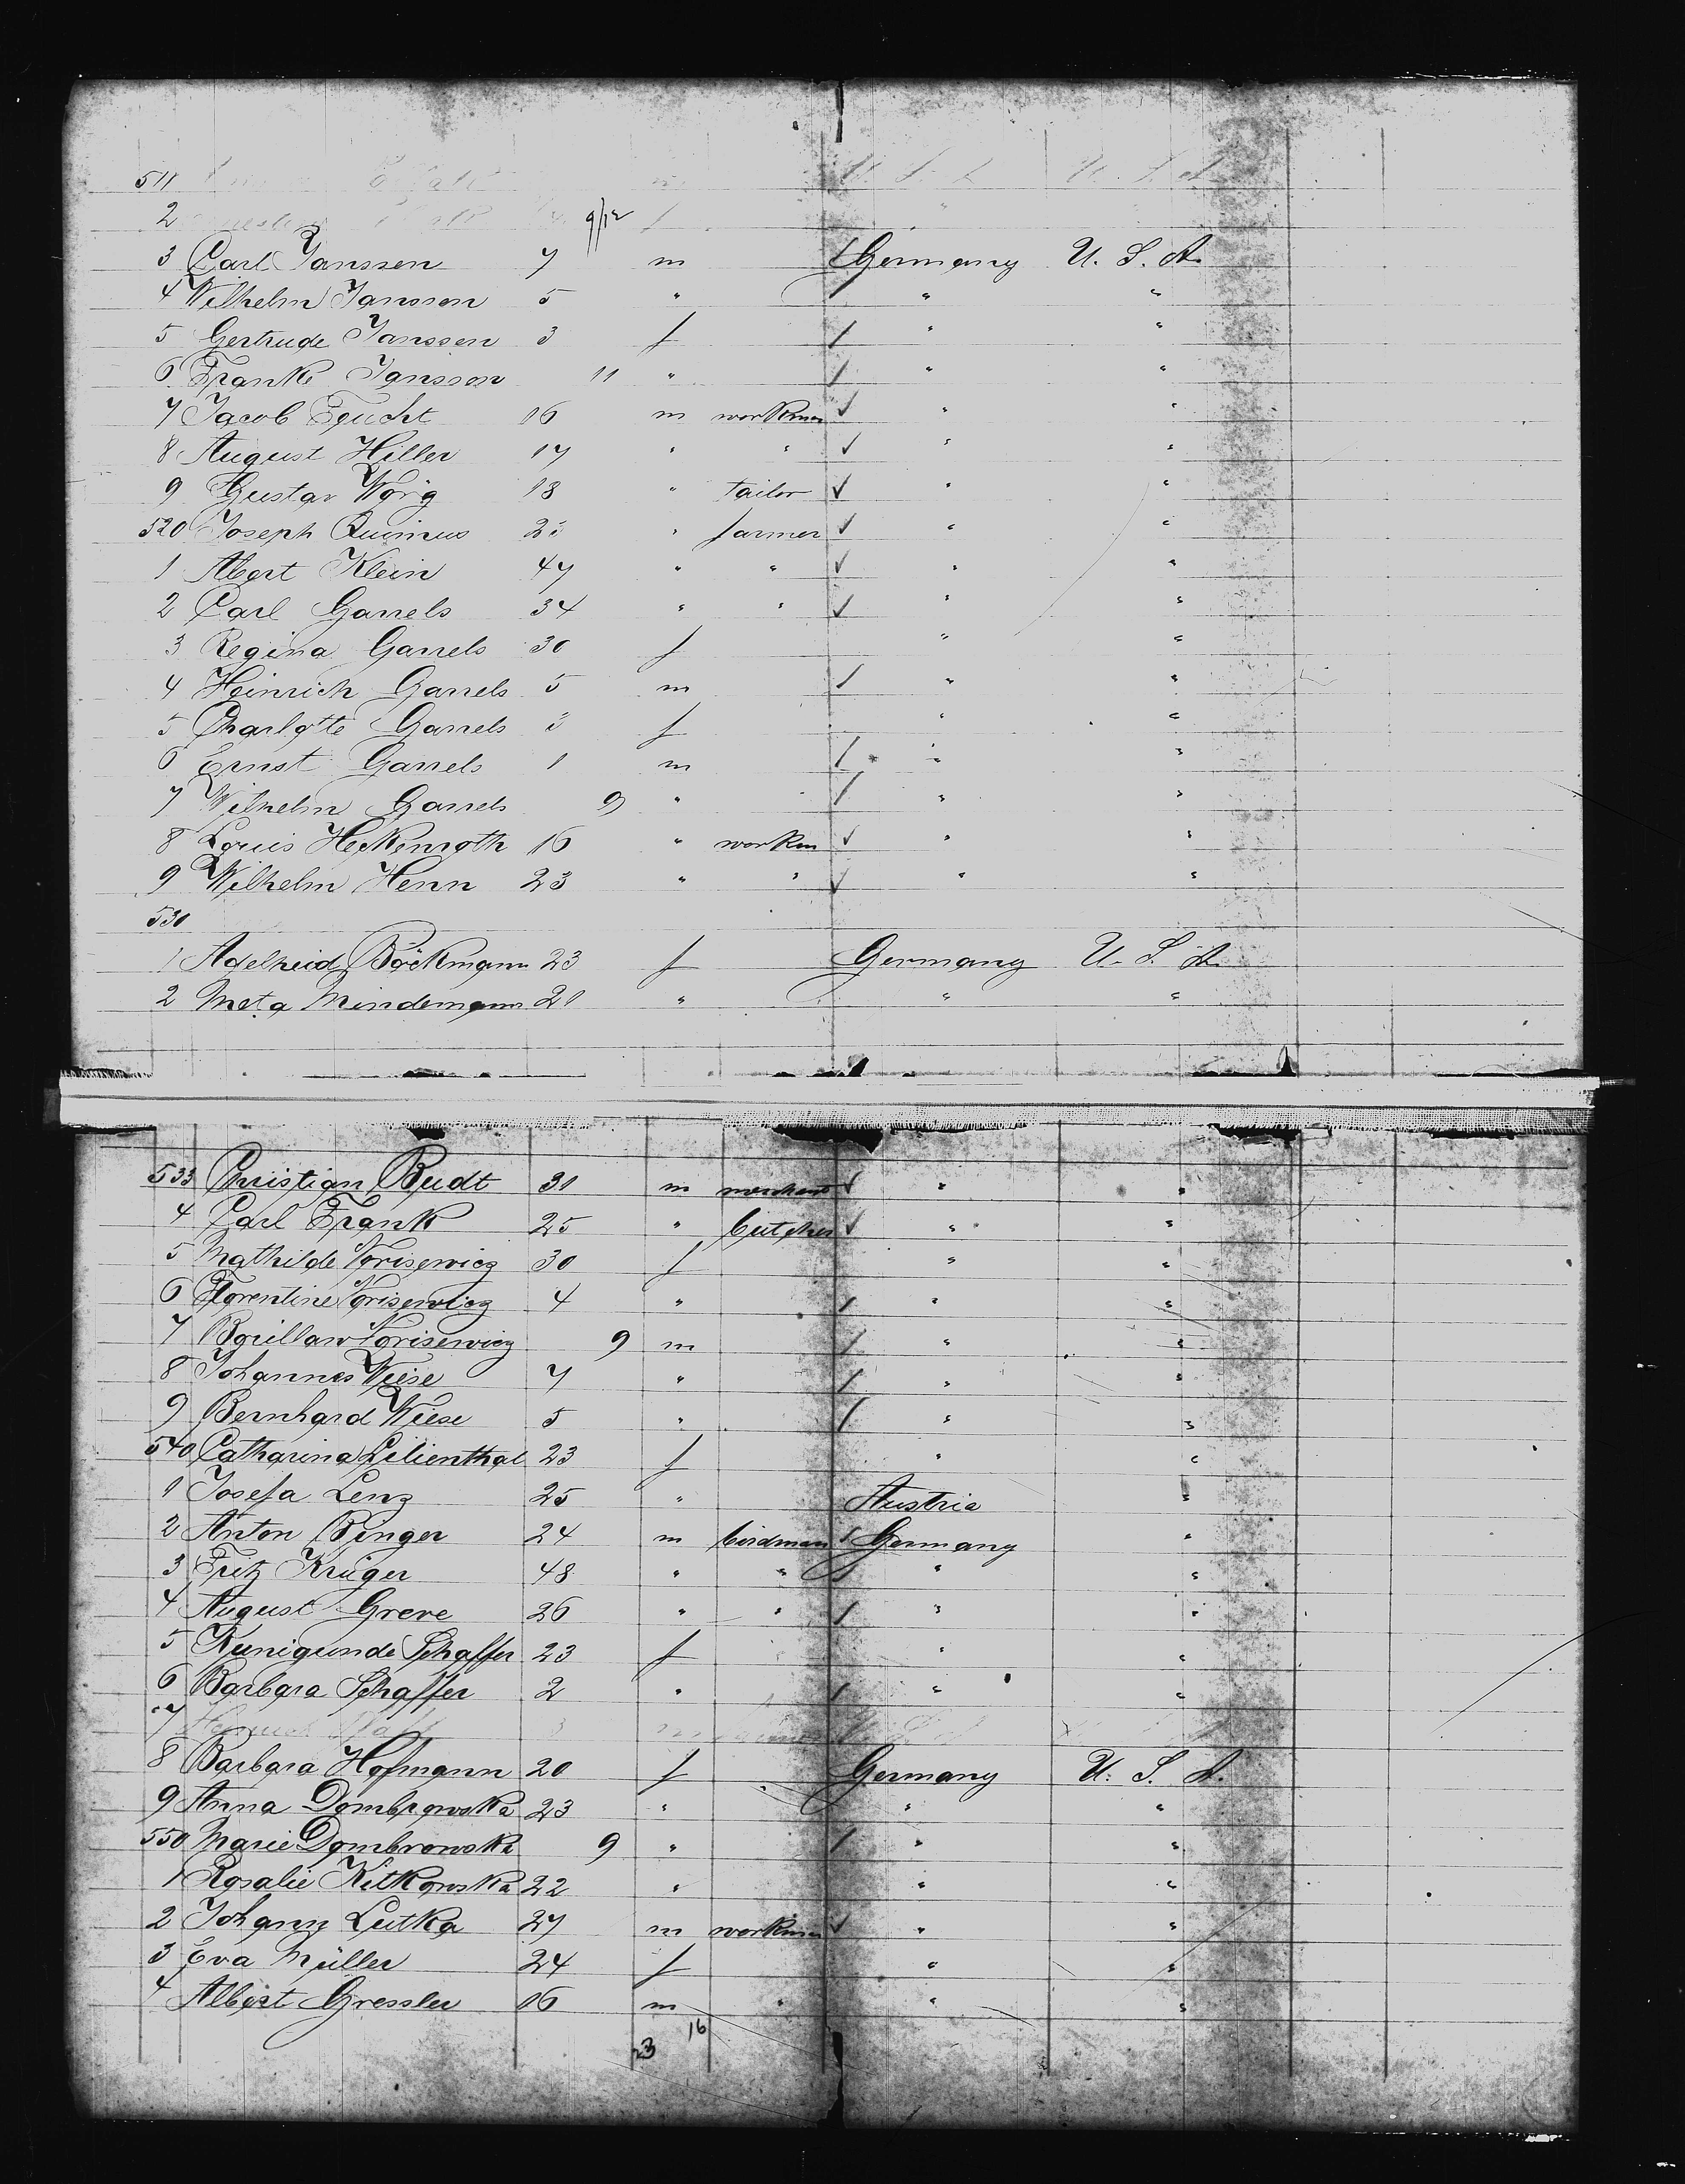 511 m U. S. A. U. S. A.
2 9/12 f "
3 Carl Janssen 7 m Germany U. S. A.
4 Wilhelm Janssen 5 " " "
5 Gertrude Janssen 3 f " "
6 Franke Janssen 11 " " "
7 Jacob Feucht 16 m workman " "
8 August Hiller 17 " " " "
9 Gustav Wörg 18 " tailor " "
520 Joseph 25 " farmer " "
1 Albert Klein 47 " " " "
2 Carl Garrels 34 " " " "
3 Regina Garrels 30 f " "
4 Heinrich Garrels 5 m " "
5 Charlotte Garrels 3 f " "
6 Ernst Garrels 1 m " "
7 Wilhelm Garrels 9 " " "
8 Louis Heckenroth 16 " workm " "
9 Wilhelm Henn 23 " " " "
530
1 Adelheid Böckmann 23 f Germany U. S. A.
2 Meta Mindemann 21 " " "
533 Christian Budt 31 m merchant " "
4 Carl Frank 25 " butcher " "
5 Mathilde Norisewicz 30 f " "
6 Florentine Norisewicz 4 " " "
7 Norisewicz 9 m " "
8 Johannes Wiese 7 " " "
9 Bernhard Wiese 5 " " "
540 Catharina Lilienthal 23 f " "
1 Josefa Lenz 25 " Austria "
2 Anton Benger 24 m birdman Germany "
3 Fritz Krüger 48 " " " "
4 August Greve 26 " " " "
5 Kunigunde Schaffer 23 f " "
6 Barbara Schaffer 2 " " "
7 m
8 Barbara Hofmann 20 f Germany U. S. A.
9 Anna Dombrowska 23 " " "
550 Marie Dombrowska 9 " " "
1 Rosalie Kitkowska 22 " " "
2 Johann Lutka 27 m workman " "
3 Eva Müller 24 f " "
4 Albert Gressler 16 m " " "
23 16